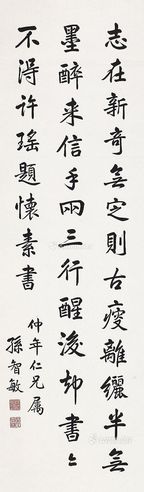 志在新奇無定則古瘦離纚半無
墨醉来信手兩三行醒後却書〻
不得許瑤題懷素書
仲年仁兄属
孫智敏